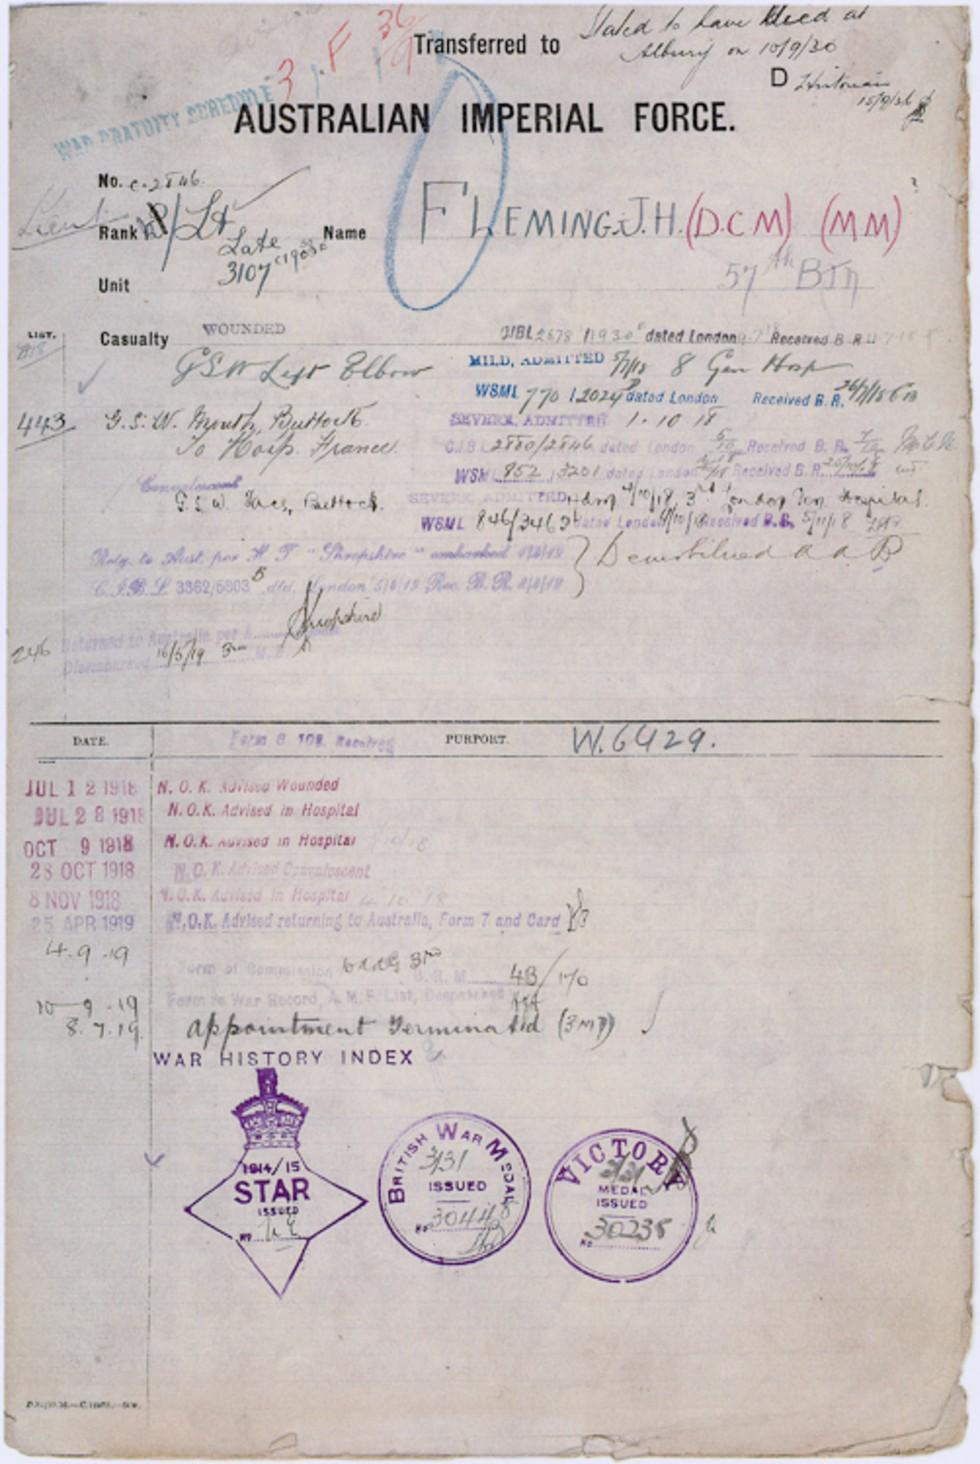 Transferred to
Stated to have died at
Albury on 10/9/36
D
15/9/36
3
WAR GRATUITY SCHEDULE
AUSTRALIAN IMPERIAL FORCE.
No. c. 2846.
Lieut
Rank /Lt Name FLEMING. J.H. (D.C.M) (MM)
Late
3107
57th BTN
Unit
LIST. Casualty WOUNDED CIBL 2678 / 1930 dated London Received B.R.
GSW Left Elbow MILD, ADMITTED 5/7/18 8 Gen Hosp
WSML 770 / 2024 dated London Received B.R.
443 G.S.W. Mouth, Buttock SEVERE, ADMITTED 1. 10 18
To Hosp. France. C.I.B.L. 2880/2846 dated London Received B.R.
WSML 852 / 3201 dated London Received B.R.
Convalescent
G.S.W. Face, Buttock. SEVERE ADMITTED 4/10/18, 3rd London Gen Hospital.
WSML 846/3463 dated London Received B.R. 5/11/18
Retg. to Aust. per H.T "Shropshire" embarked
C.I.B.L 3362/5803 dtd. London Rec. B.R.
Demobilised
Shropshire
246 Returned to Australia per
Disembarked 16/5/19 3rd M.D.
DATE. Form B 103. Received PURPORT. W.6429.
JUL 12 1918 N.O.K. Advised Wounded
JUL 28 1918 N.O.K. Advised in Hospital
OCT 9 1918 N.O.K. Advised in Hospital
28 OCT 1918 N.O.K. Advised Convalescent
8 NOV 1918 N.O.K. Advised in Hospital 4. 10. 18
25 APR 1919 N.O.K. Advised returning to Australia, Form 7 and Card
4.9.19
Form of Commission 3rd 43/170
10-9-19 Form re War Record, A.M.F. List, Despatched
8.7.19 Appointment Terminated (3MD)
WAR HISTORY INDEX
1914/15
STAR
ISSUED
No. N.E
BRITISH WAR MEDAL
3/31
ISSUED
No. 30448
VICTORY
3/31
MEDAL
ISSUED
No. 30238